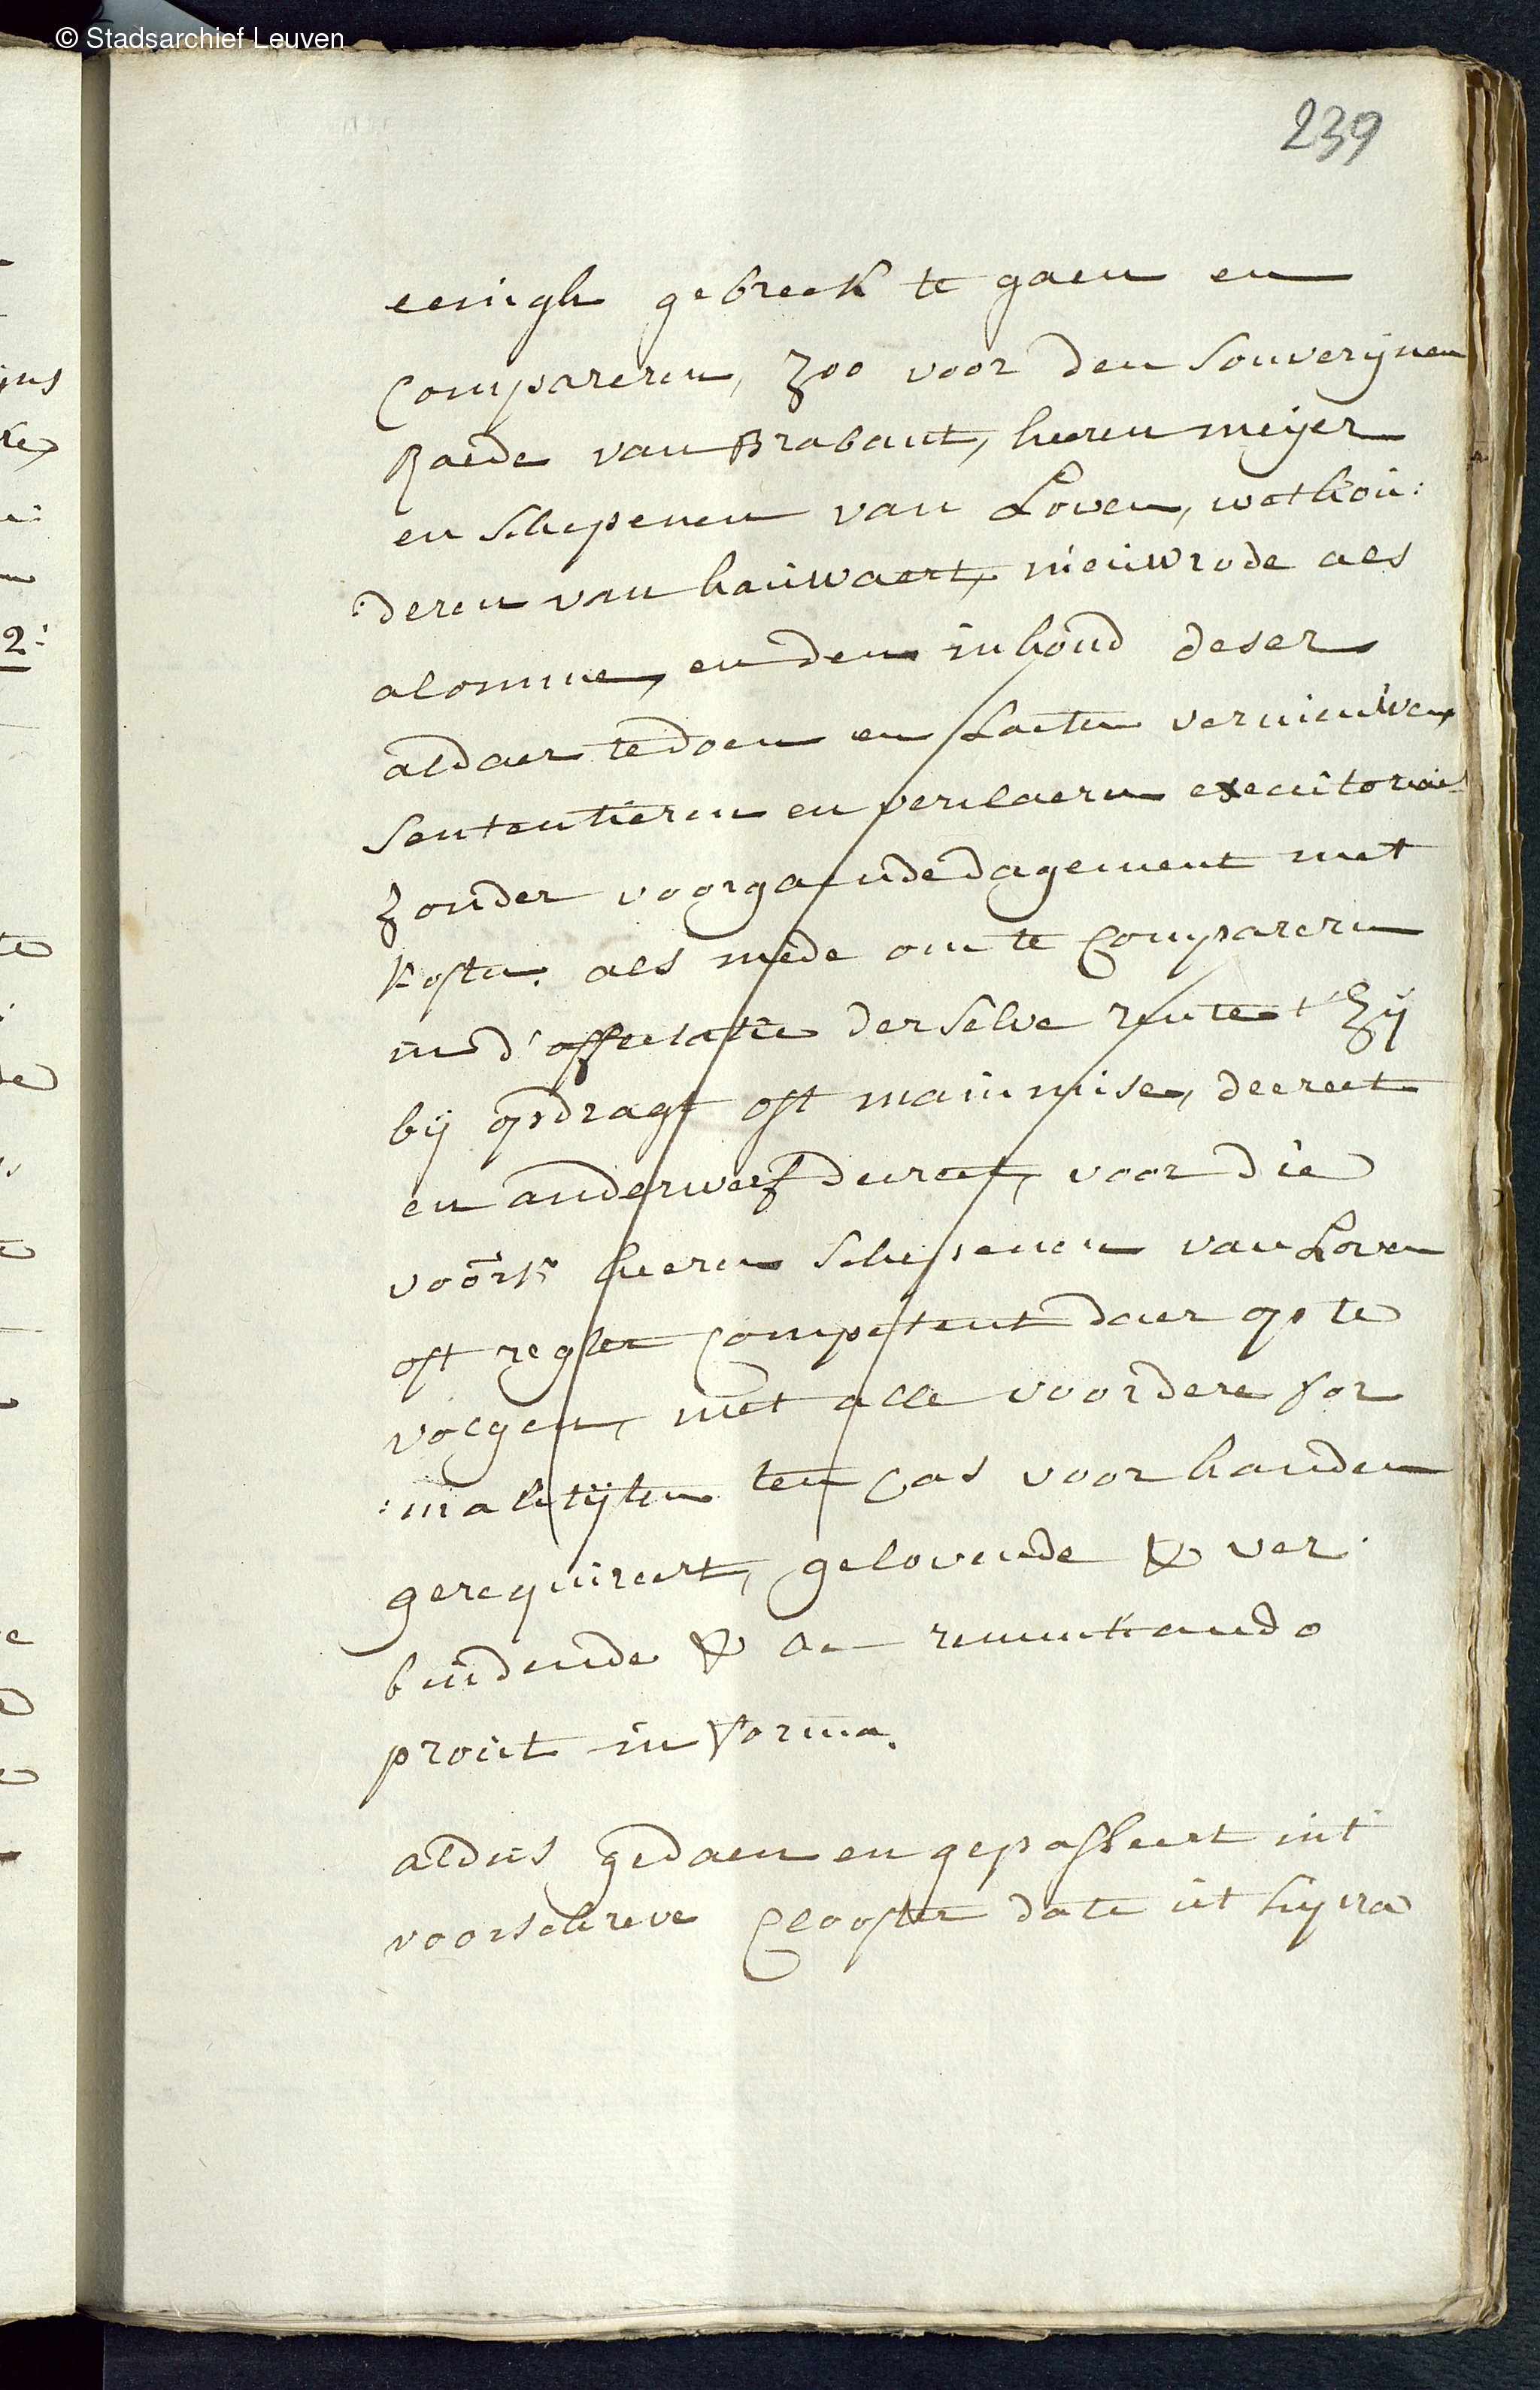 © Stadsarchief Leuven
239
eenigh gebreck te gaen en
Compareren, zoo voor den Souverijnen
Raede van Brabant, heeren meijer
en schepenen van Loven, wethou:
:deren van hauwaert, nieuwrode als
alomme, en den inhoud deser
aldaer te doen en laeten vernieuwen,
Sententieren en verclaeren executoriael
zonder voorgaende dagement met
kosten. als mede om te Compareren
in d'affectatie der selve rente t'zij
bij opdragt oft mainmise, decreet
en anderwerf decreet, voor die
voors.r heeren Schepenen van Loven
oft regter Competent daer op te
volgen, met alle voordere for
:malitijten ten cas voor handen
gerequireert, gelovende & ver
bindende & ac renuntiando
prout in forma.
aldus gedaen en gepasseert int
voorschreve Clooster date ut supra